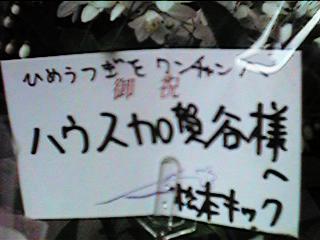 ひめうつぎを ワンチャンスへ
御祝
ハウス加賀谷様
へ
松本キック